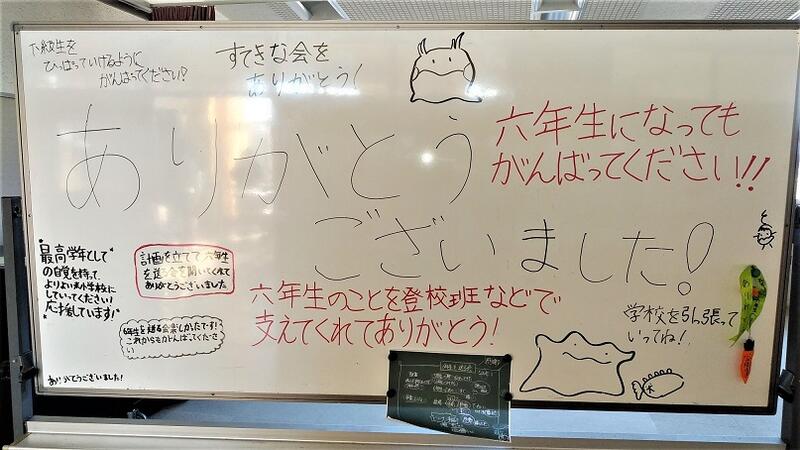 下級生を
ひっぱっていけるように
がんばってください!
すてきな会を
ありがとう!
ありがとう
ございました!
六年生になっても
がんばってください!!
最高学年として
の自覚を持って、
よりよい小学校に
していってください!
応援しています!
計画を立てて六年生
を送る会を開いてくれて
ありがとうございました
六年生のことを登校班などで
支えてくれてありがとう!
6年生を送る会楽しかったです!
これからもがんばってくださ
い
学校を引っ張って
いってね!
ありがとうございました!